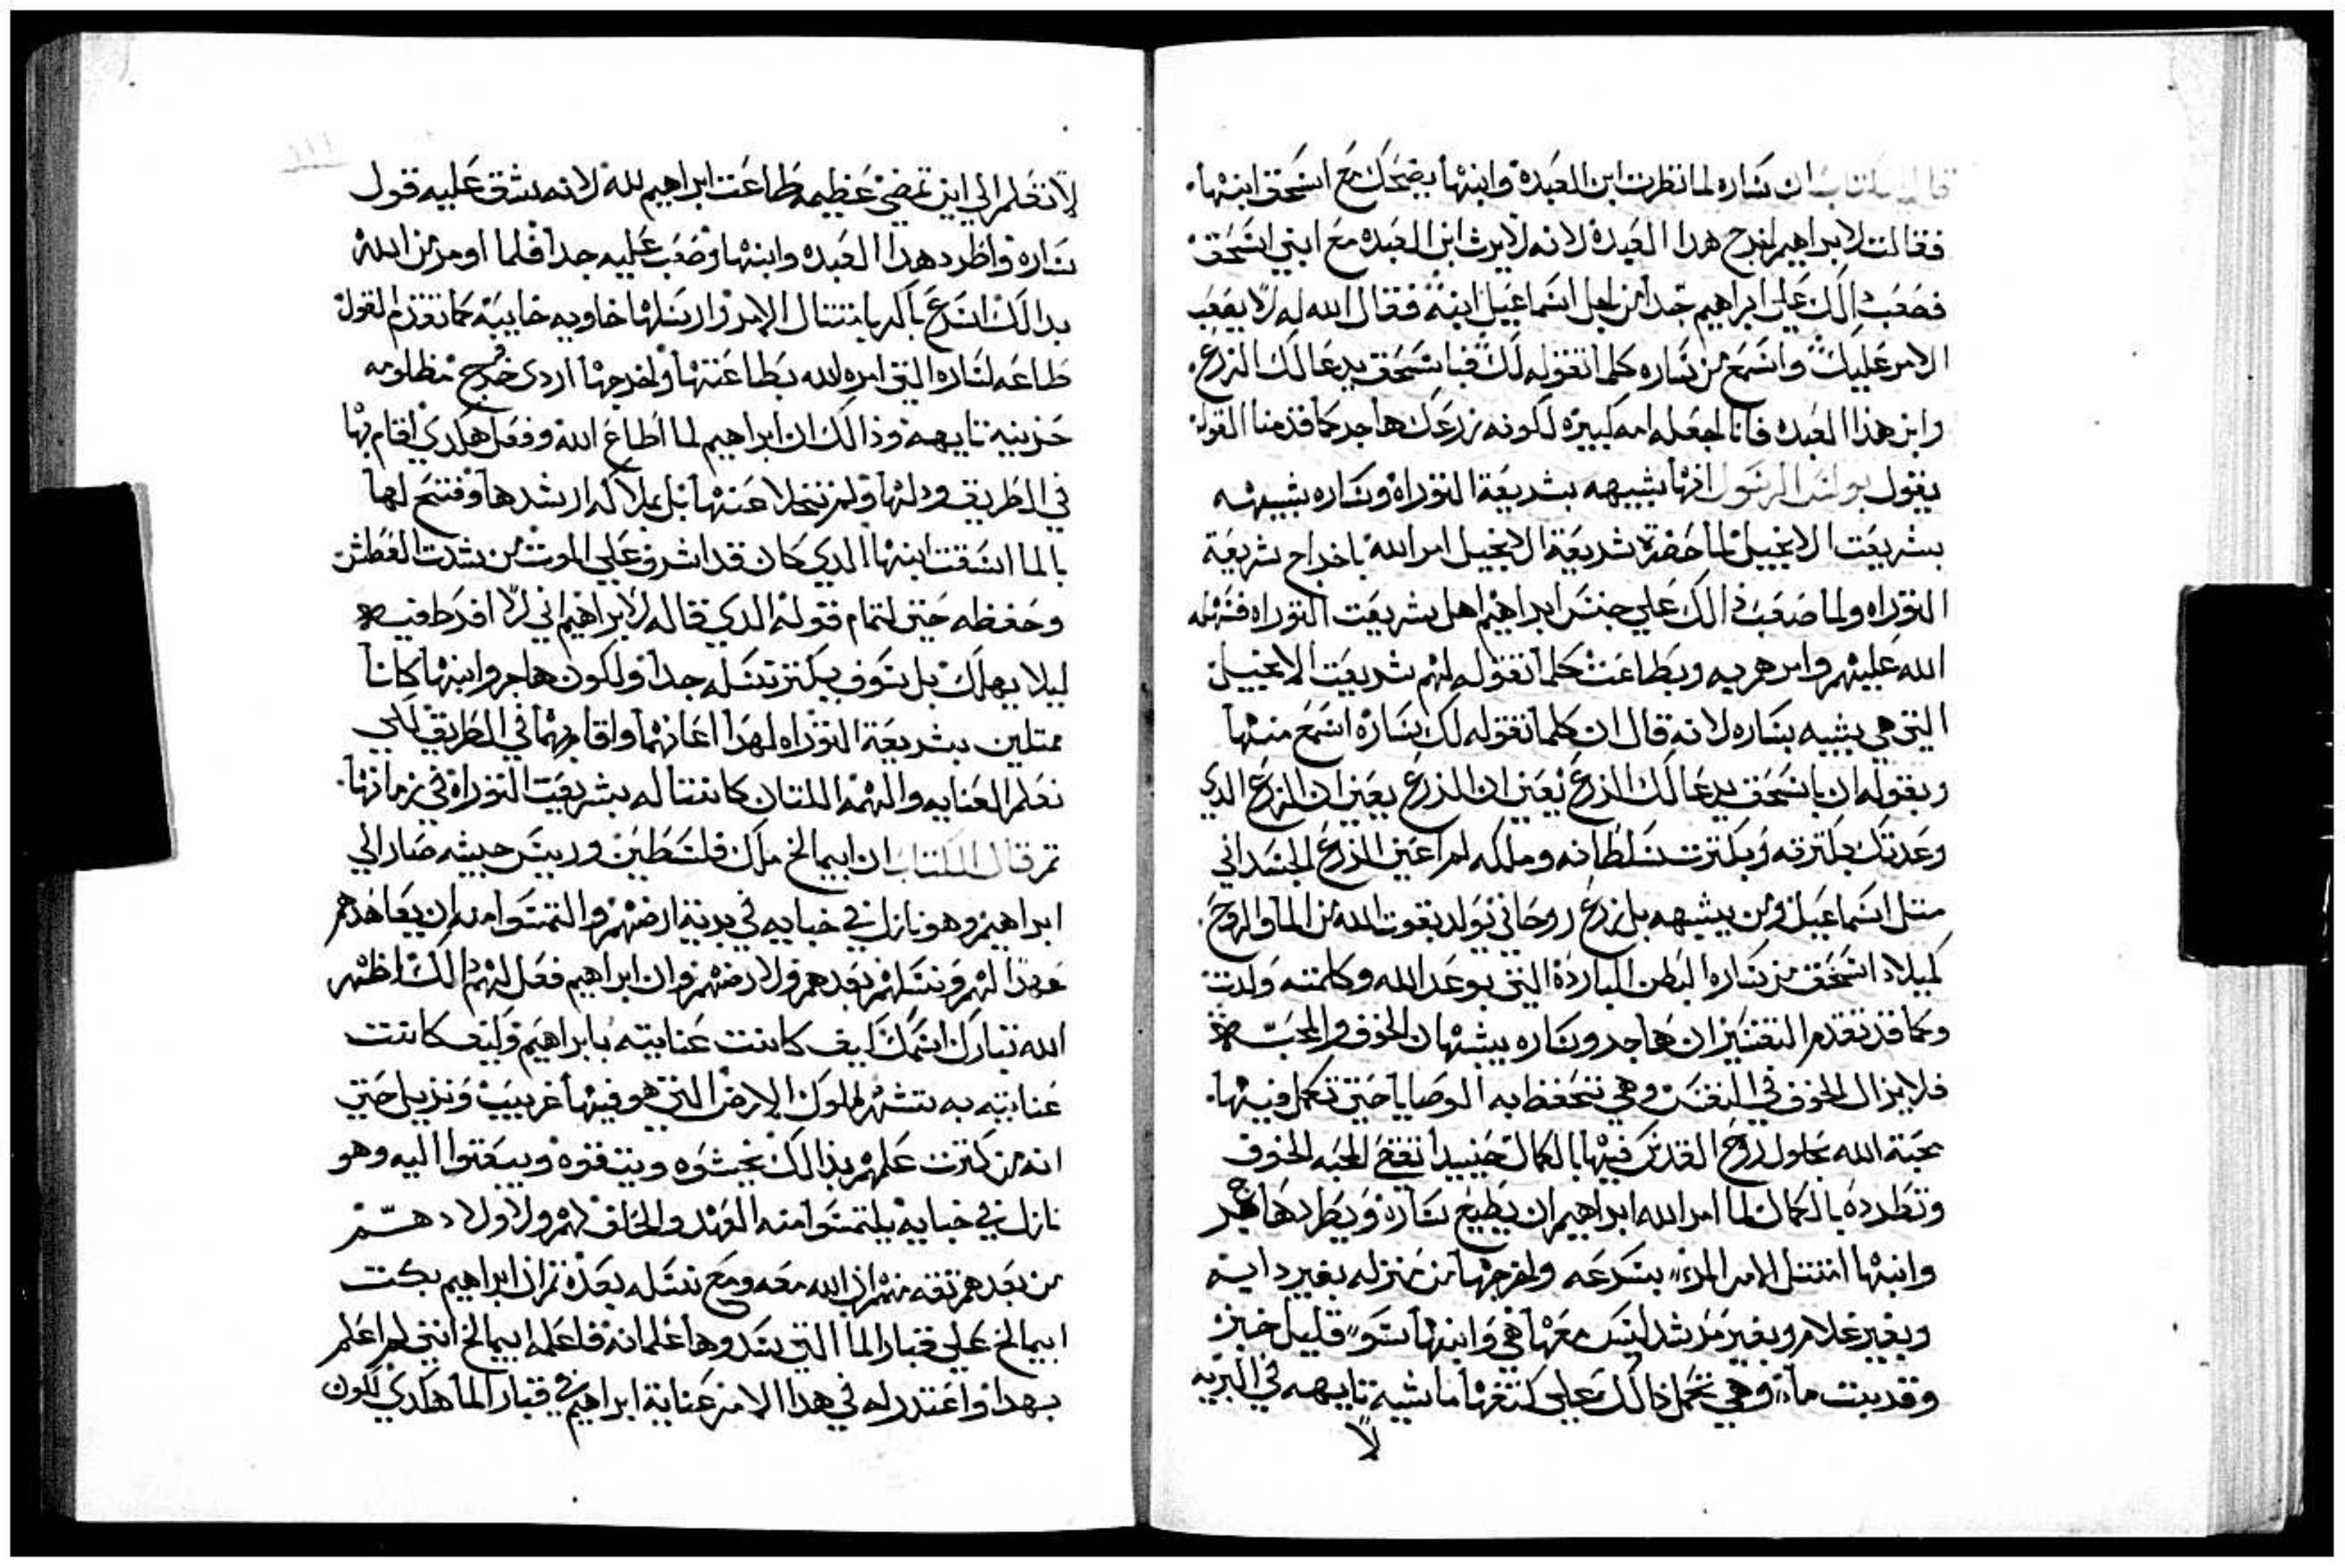 قال الكتاب ان ساره لما نظرت ابن العبده وابنها يضحك مع اسحق ابنها.
فقالت لابراهيم اخرج هدا العبده لانه لا يرث ابن العبده مع ابني اسحق
فصعب دالك علي ابراهيم جدا من اجل اسماعيل ابنه فقال الله له لا يصعب
الامر عليك واسمع من ساره كلما تقوله لك فباسحق يدعا لك الزرع.
وابن هذا العبده فانا اجعله امه كبيره لكونه زرعك هاجر كما قدمنا القول
يقول بولس الرسول انها بشبيهه بشريعة التوراه وساره بشبيهه
بشريعت الانجيل لما حضرة شريعة الانجيل امر الله باخراج شريعة
التوراه ولما صعب دالك علي جنس ابراهيم اهل شريعت التوراه فسهله
الله عليهم وامرهم به وبطاعت كلما تقوله لهم شريعت الانجيل
التي هي بشبيه بساره لانه قال ان كلما تقوله لك ساره اسمع منها
وبقوله ان باسحق يدعا لك الزرع يعني ان الزرع يعني ان الزرع الدي
وعدتك بكترته وبكترت سلطانه وملكه لم اعني الزرع الجسداني
متل اسماعيل ومن يشبهه بل زرع روحاني يولد بقوت الله من الما والروح.
كميلاد اسحق من ساره البطن البارده التي بوعد الله وكلمته ولدت
وكما قد تقدم التفسير ان هاجر وساره يشبهان الخوف والمحبه
فلا يزال الخوف في النفس وهي تتحفظ به الوصايا حتي تكمل فيها.
محبة الله بحلول روح القدس فيها بالكمال حينيدا تقع المحبه الخوف
وتطرده بالكمال لما امر الله ابراهيم ان يطيع ساره ويطرد هاجر
وابنها امتتل الامر المر بسرعه واخرجها من منزله بغير دابه
وبغير غلام وبغير مرشد ليس معها هي وابنها سو قليل خبز
وقد بيت ما وهي تحمل ذالك علي كتفها ماشيه تايهه في البريه
لا
لا تعلم الي اين تمضي عظيمه طاعت ابراهيم لله لانه شق عليه قول
ساره واطرد هدا العبده وابنها وصعب عليه جدا فلما اومر من الله
بدالك اسرع باكر بامتتال الامر وارسلها خاويه خايبه كما تقدم القول
طاعه لساره التي امره الله بطاعتها واخرجها اردي خرج مظلومه
حزينه تايهه وذالك ان ابراهيم لما اطاع الله وفعل هكدي اقام بها
في الطريق ودلها ولم تتخلا عنها بل بملاكه ارشدها وفتح لها
بالما اسقت ابنها الدي كان قد اشرف علي الموت من شدت العطش
وحفظه حتي لتمام قوله الدي قاله لابراهيم اني لا افرط فيه
ليلا يهلك بل سوف يكتر نسله جدا ولكون هاجر وابنها كانا
ممتلين بشريعة التوراه لهدا اعانهما واقام بهما في الطريق لكي
نعلم العنايه والهمه اللتان كانتا له بشريعت التوراه في زمانها.
تم قال الكتاب ان ابيمالخ ملك فلسطين وربيس حبيشه صار الي
ابراهيم وهو نازل في خبايه في برية ارضهم والتمسوا منه ان يعاهدهم
عهدا لهم ونسلهم بعدهم ولارضهم وان ابراهيم فعل لهم دالك اظهر
الله تبارك اسمك كيف كانت عنايته بابراهيم وكيف كانت
عنايته به تتشهر لملوك الارض التي هو فيها غريب ونزيل حتي
انه من كترت علمهم بذالك يخشوه ويتقوه ويبعتوا اليه وهو
نازل في خبايه يلتمسوا منه العهد والحلف لهم ولاولادهم
من بعدهم تقه منهم ان الله معه ومع نسله بعده تم ان ابراهيم بكت
ابيمالخ علي قبار الما التي سدوها غلمانه فاعلمه ابيمالخ انني لم اعلم
بهدا واعتدر له في هدا الامر عناية ابراهيم في قبار الما هكدي لكون